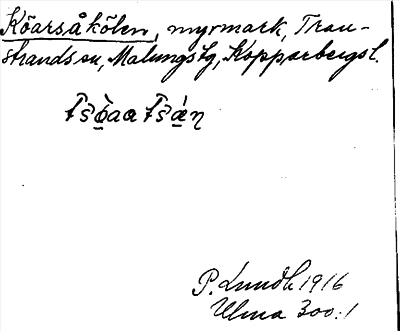 Köarsåkölen, myrmark, Tran-
strands sn, Malungs tg, Kopparbergs l.
P. Lundh 1916
Ulma 300:1